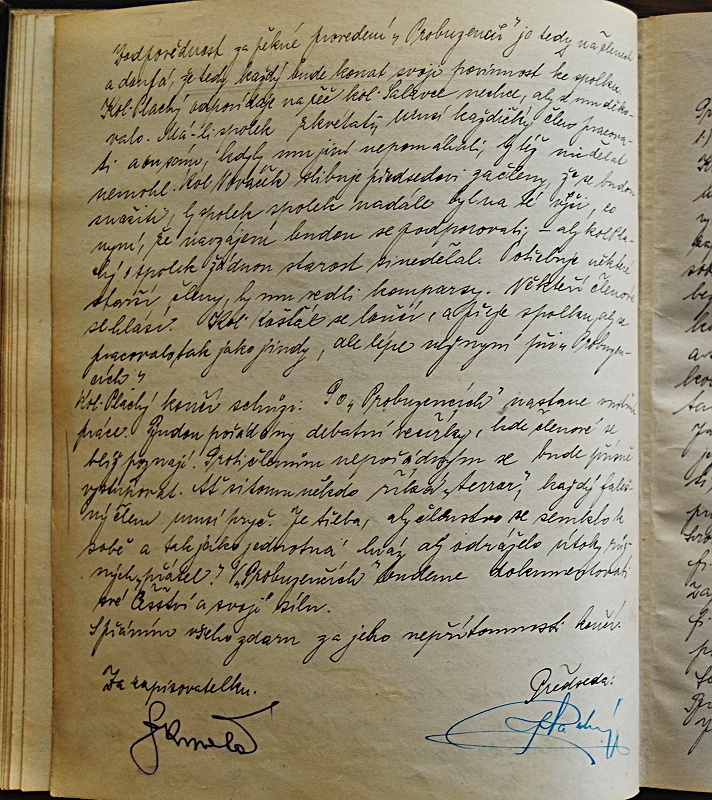 Zodpovědnost za pěkné provedení „Probuzenců" je tedy na členech
a doufá, že tedy každý bude konat svoji povinnost ke spolku.
Kol. Plachý odpovídá na řeč kol. nechce, aby mu děko-
valo. Má-li spolek zkvétati, musí každičký člen pracova-
ti a on sám, kdyby mu jiní nepomáhali, by též nic dělat
nemohl. Kol. Nováček slibuje předsedovi za členy, že se budou
snažiti, by spolek spolek nadále byl na té výši, co
nyní, že navzájem budou se podporovati, aby kol. Pla-
chý spolek žádnou starost nedělal. Potřebuje některé
starší členy, by mu vedli komparsy. Někteří členové
se hlásí. Kol. Košťál se loučí, a přeje spolku, aby se
pracovalo tak jako jindy, ale lépe nyní při „Probuzen-
cích"
Kol. Plachý končí schůzi. Po „Probuzencích" nastane vnitřní
práce. Budou pořádány debatní večírky, kde členové se
blíž poznají. Proti členům nepořádným se bude přísně
vystupovat. Ať si tomu někdo říká „terror", každý faleš-
ný člen musí pryč. Je třeba, aby členstvo se semklo k
sobě a tak jako jednotná hráz aby odráželo útoky růz-
ných „přátel"! V „Probuzencích" budeme dokumentovati
své Češství a svoji sílu.
S přáním všeho zdaru za jeho nepřítomnosti končí.
Za zapisovatelku. Předseda:
Plachý